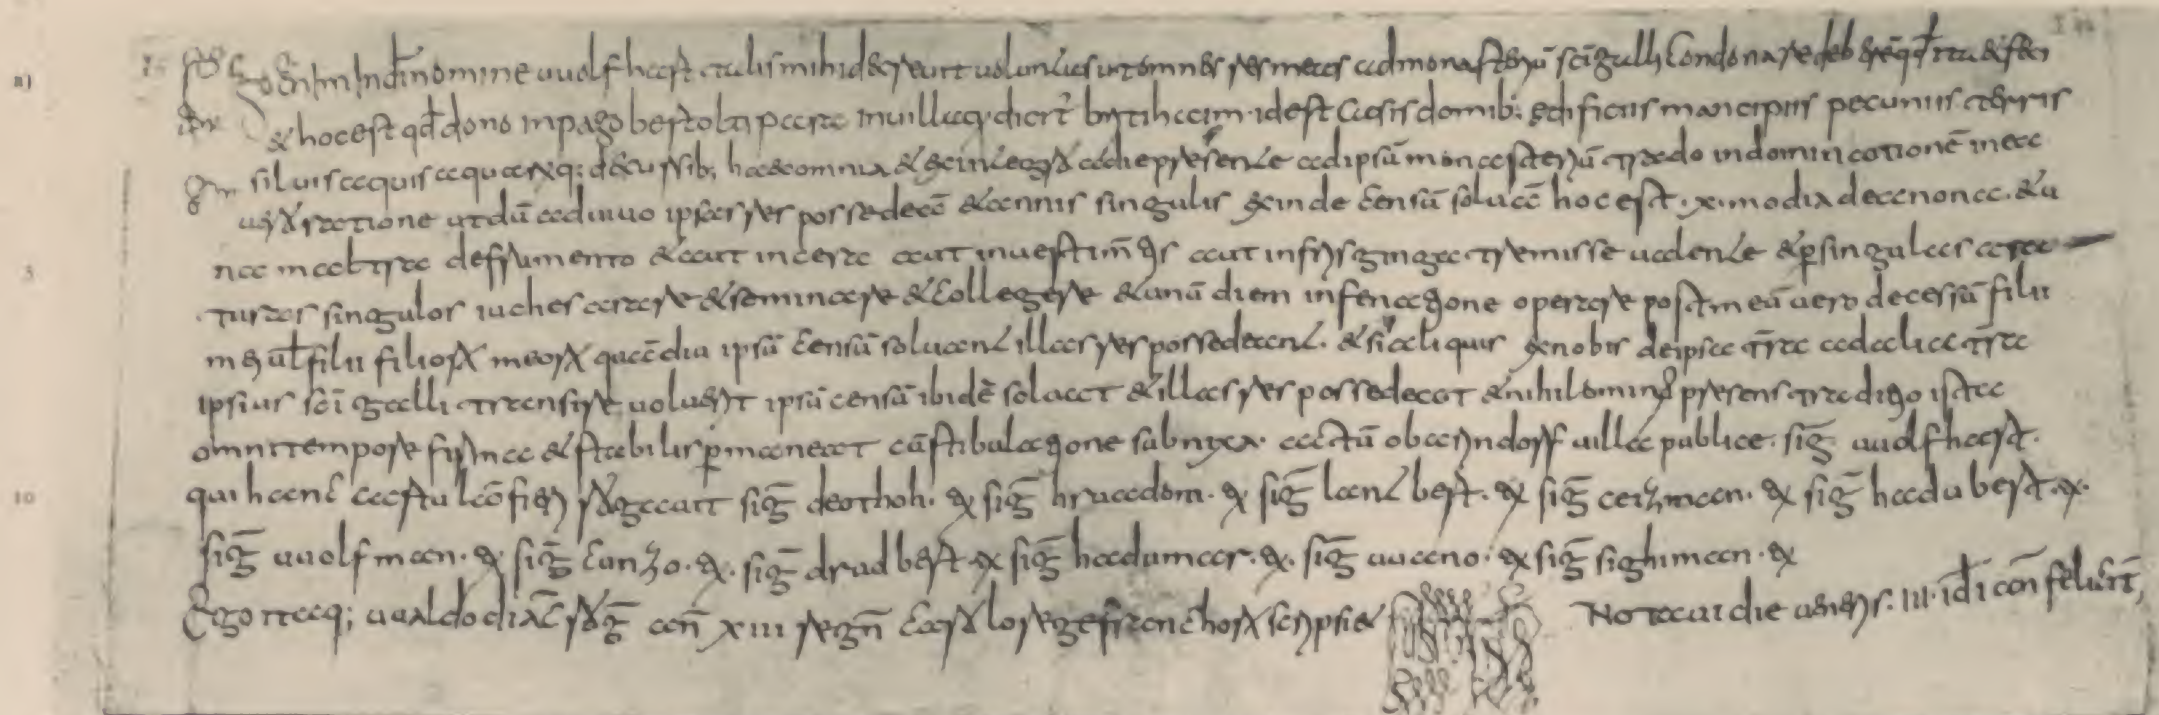 Ego enim In dī nomine uuolfhart talis mihi decreuit uoluntas ut omnes res meas ad monasteriū sc̄i galli Condonare deberē qđ ita & feci
& hoc est qđ dono in pago bertoltipara in uilla q; dicit̄ brittihaim · id est Casis domib; edificiis mancipiis pecuniis terris
siluis aquis aquarūq; decursib; haec omnia & ex integro a die presente ad ipsū monasteriū trado in dominicationē in ea
uero ratione ut dū aduiuo ipsas res possedeā & annis singulis exinde Censū soluā hoc est · x · modia de annona · & u
na maltra de frumento & aut in cera aut in uestimētis aut in friskinga tremisse ualente & p singulas ara
turas singulos iuches arare & seminare & Collegere & unā diem in fenatione operare post meū uero decessū filii
mei uƚ filii filiorū meorū quādiu ipsū Censū soluant illas res possedeant · & si aliquis ex nobis de ipsa tr̄ra ad alia tr̄ra
ipsius sc̄i galli transire uoluerit ipsū censū ibidē soluat & illas res possedeat & nihilominus presens traditio ista
omni tempore firma & stabilis pmaneat cū stibulatione subnixa · actū obarindorf uilla publice · siḡ uuolfhart ·
qui hanc Cartulā fieri rogauit siḡ deothoh · & siḡ hruadom · & siḡ lantbert · & siḡ cuzman · & siḡ hadubert · & ·
siḡ uuolfman · & siḡ Cunzo · & · siḡ drudbert · & siḡ hadumar · & · siḡ uuano · & siḡ sighiman · &
Ego itaq; uualdo diac̄ rog̅ an̄ xiii regn̄ Carolo rege franchorū scripsi &
Notaui die ueneris · iii · id̄ com̄